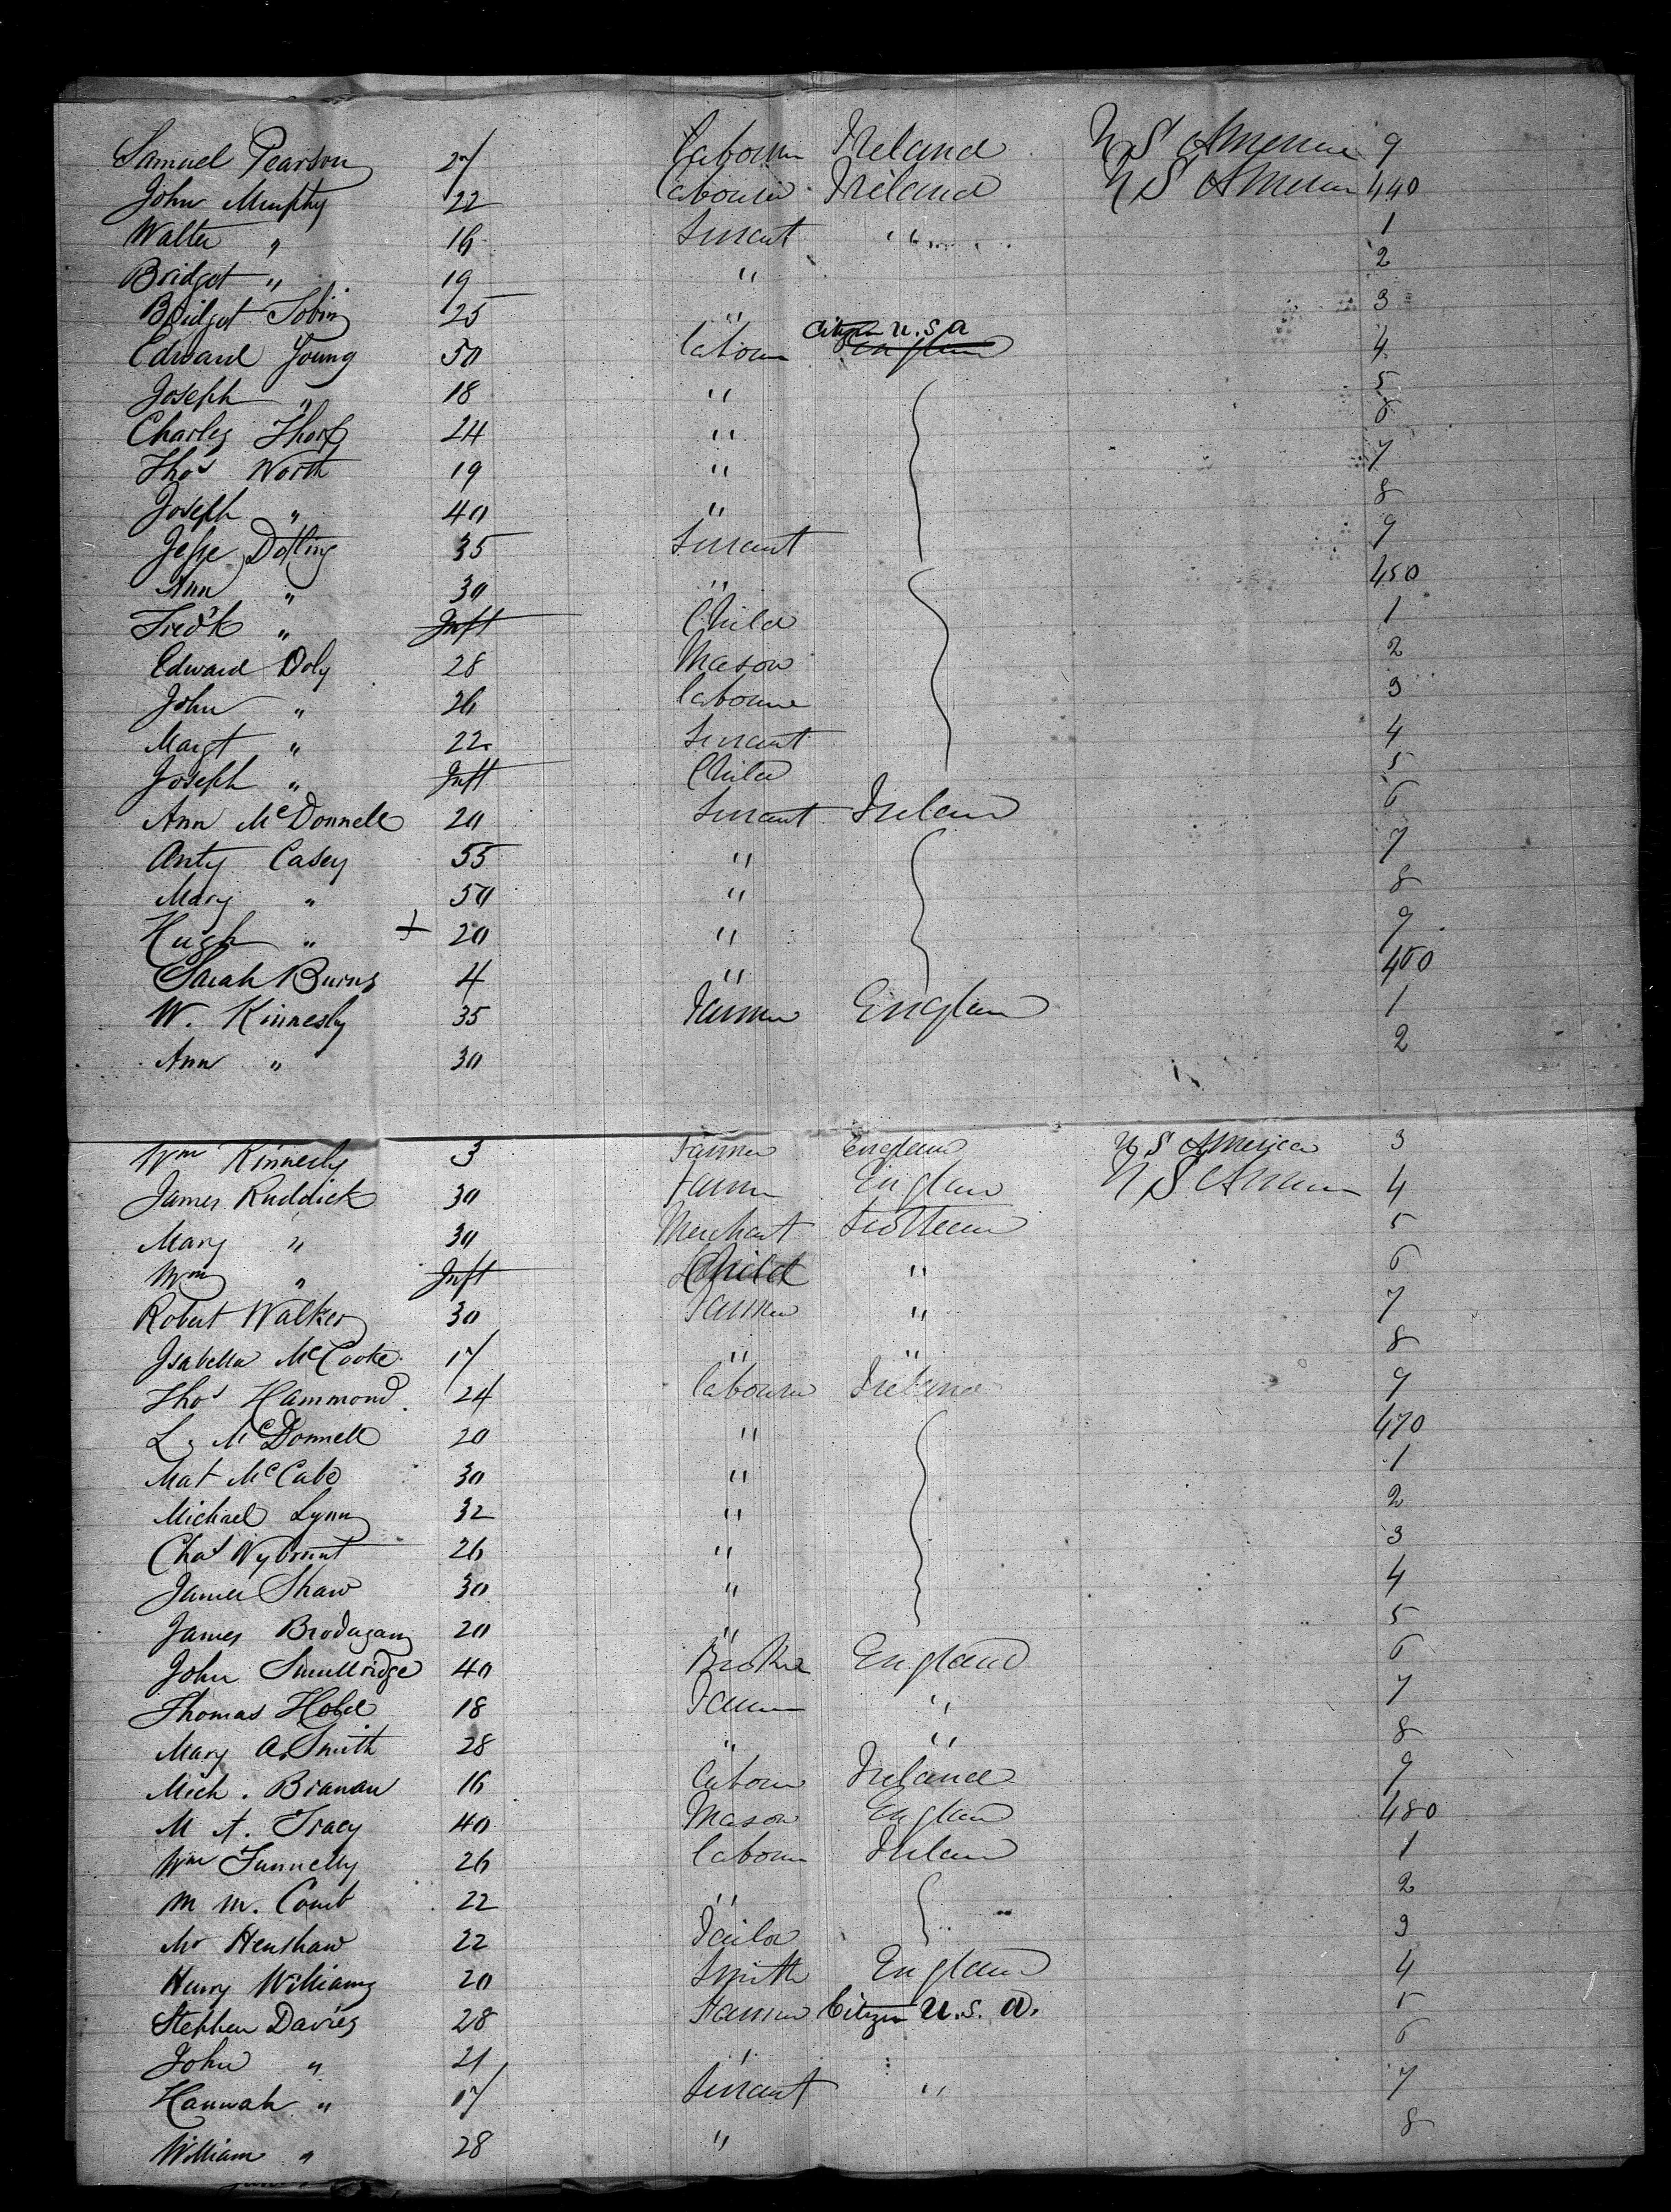 Samuel Pearson 27 Labourer Ireland U S America 9
John Murphy 22 Labourer Ireland U S America 440
Walter " 16 Servant " 1
Bridget " 19 " 2
Bridget Tobin 25 " 3
Edward Young 50 Labourer England Citizen U.S.A 4
Joseph " 18 " 5
Charles Thorp 24 " 6
Thos North 19 " 7
Joseph " 40 " 8
Jesse Dotling 35 Servant 9
Ann " 30 " 450
Fredk " Inft Child 1
Edward Doly 28 Mason 2
John " 26 Labourer 3
Margt " 22 Servant 4
Joseph " Inft Child 5
Ann McDonnell 20 Servant Ireland 6
Anty Casey 55 " 7
Mary " 50 " 8
Hugh " + 20 " 9
Sarah Burns 4 " 460
W. Kinnesly 35 Farmer England 1
Ann " 30 2
Wm Kinnesly 3 Farmer England U S America 3
James Ruddick 30 Farmer England U S America 4
Mary " 30 Merchant Scotland 5
Wm " Inft Child " 6
Robert Walker 30 Farmer " 7
Isabella McCooke 17 " " 8
Thos Hammond 24 Labourer Ireland 9
L. McDonnell 20 " 470
Mat McCabe 30 " 1
Michael Lynn 32 " 2
Chas Vybrant 26 " 3
James Shaw 30 " 4
James Brodagan 20 " 5
John Smullridge 40 England 6
Thomas 18 Farmer " 7
Mary A. Smith 28 " " 8
Mich. Branan 16 Labourer Ireland 9
M A. Tracy 40 Mason England 480
Wm Funnelly 26 Labourer Ireland 1
M M. Comb 22 " 2
Mr Henshaw 22 Tailor 3
Henry Williams 20 Smith England 4
Stephen Davies 28 Farmer Citizen U.S.A. 5
John " 21 " 6
Hannah " 17 Servant " 7
William " 28 " 8